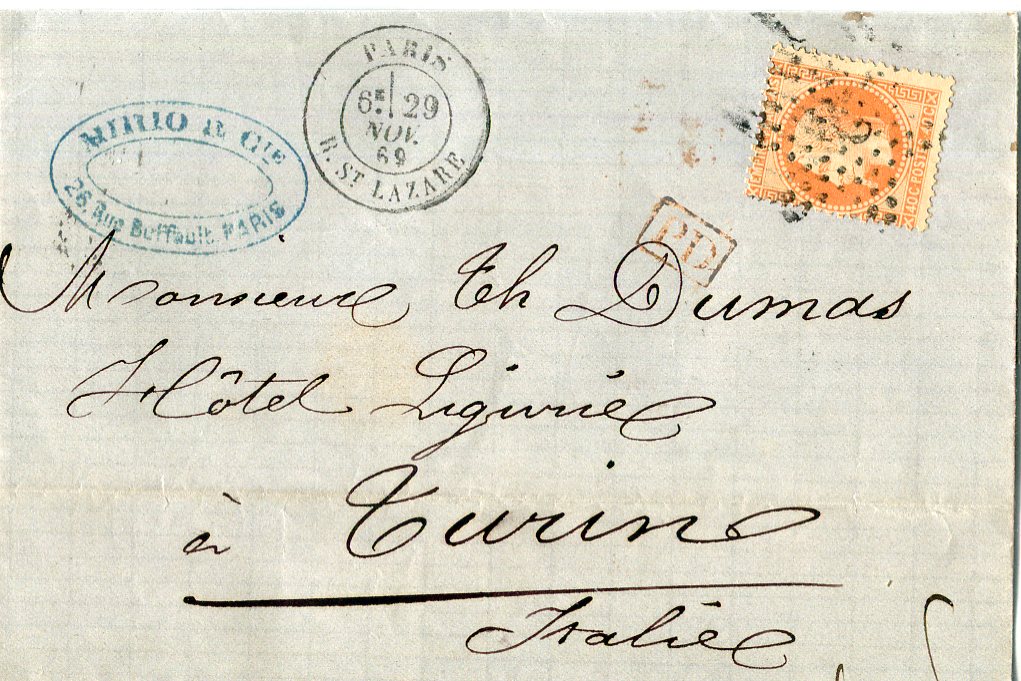 MIRIO & Cie
26, Rue Buffault, PARIS
PARIS
6E 29
NOV.
69
R. ST LAZARE
EMPIRE
40 C POSTES 40 C
2
PD
Monsieur Th Dumas
Hôtel Ligurie
à Turin
Italie